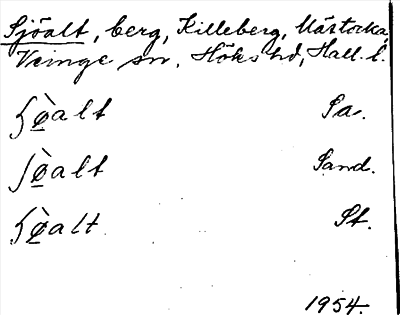 Sjöalt, berg, Killeberg, Mästocka,
Veinge sn, Höks hd, Hall. l.
ʃö̀alt Sa.
ʃö̀alt Sand.
ʃö̀alt St.
1954.